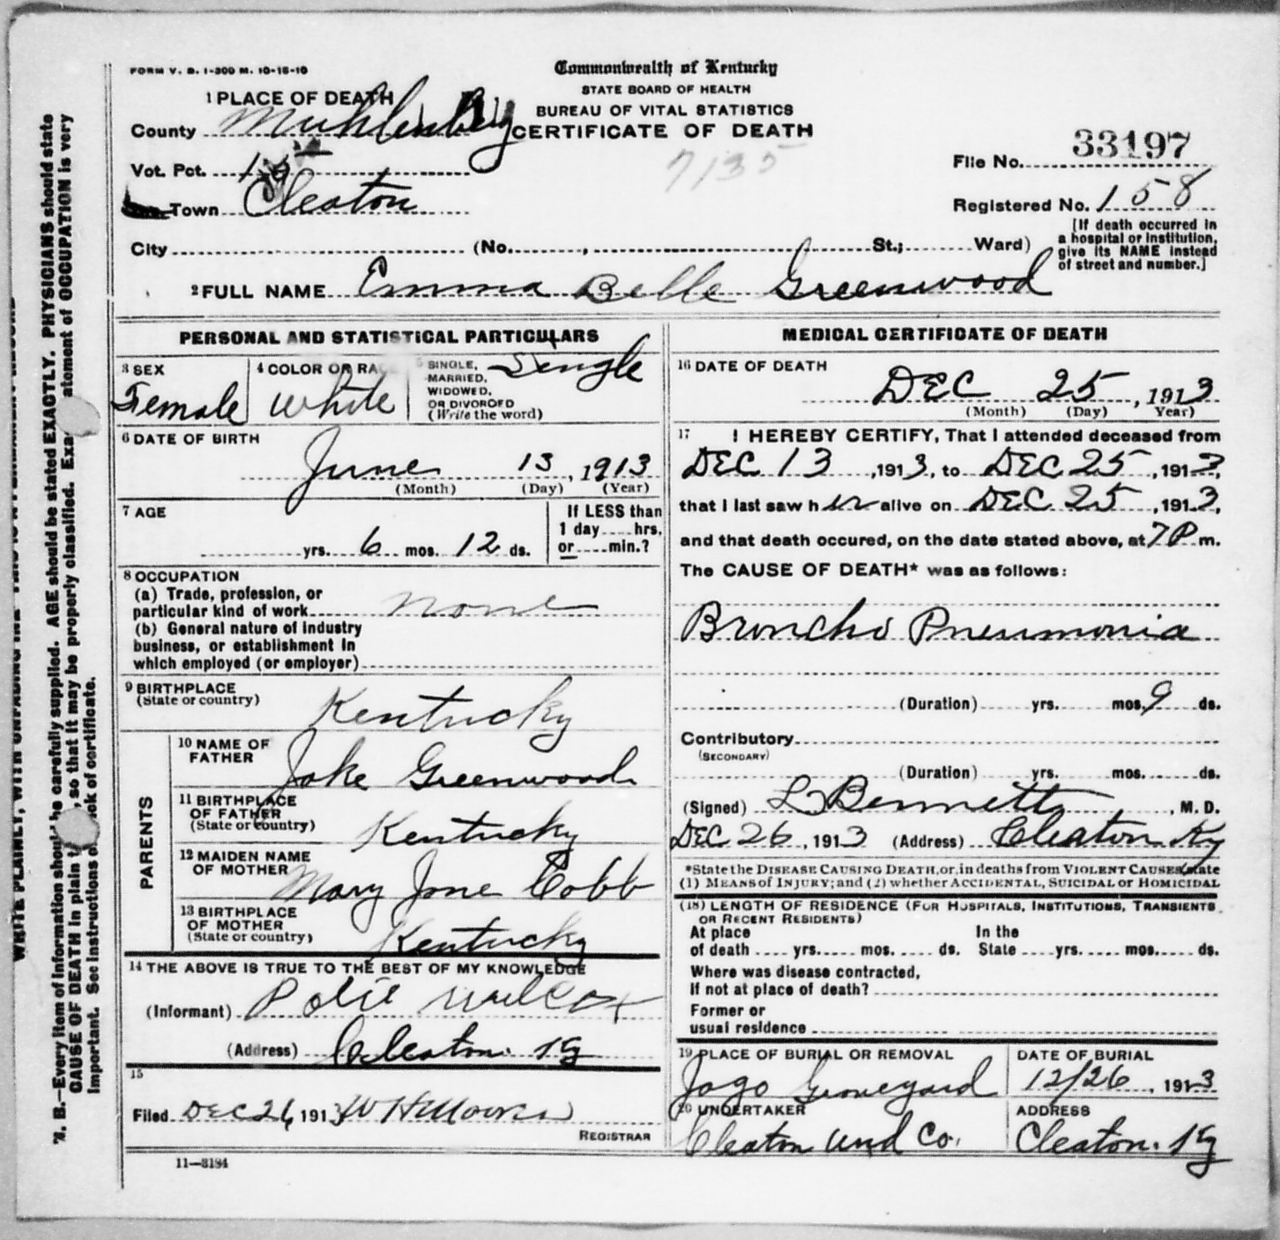 FORM V. S. 1-300 M. 10-18-10
Commonwealth of Kentucky
STATE BOARD OF HEALTH
BUREAU OF VITAL STATISTICS
CERTIFICATE OF DEATH
1 PLACE OF DEATH
County Muhlenberg
7135
File No. 33197
Vot. Pct.
Town Cleaton
Registered No. 158
City (No. , St.; Ward)
[If death occurred in
a hospital or institution,
give its NAME instead
of street and number.]
2 FULL NAME Emma Belle Greenwood
PERSONAL AND STATISTICAL PARTICULARS
3 SEX
Female
4 COLOR OR RACE
White
5 SINGLE,
MARRIED,
WIDOWED,
OR DIVORCED
(Write the word)
Single
6 DATE OF BIRTH
June 13, 1913
(Month) (Day) (Year)
7 AGE
yrs. 6 mos. 12 ds.
If LESS than
1 day hrs.
or min.?
8 OCCUPATION
(a) Trade, profession, or
particular kind of work none
(b) General nature of industry
business, or establishment in
which employed (or employer)
9 BIRTHPLACE
(State or country)
Kentucky
PARENTS
10 NAME OF
FATHER
Jake Greenwood
11 BIRTHPLACE
OF FATHER
(State or country)
Kentucky
12 MAIDEN NAME
OF MOTHER
Mary Jane Cobb
13 BIRTHPLACE
OF MOTHER
(State or country)
Kentucky
14 THE ABOVE IS TRUE TO THE BEST OF MY KNOWLEDGE
(Informant) Wilcox
(Address) Cleaton Ky
15
Filed DEC 26, 1913 W H Moore
REGISTRAR
11—3184
MEDICAL CERTIFICATE OF DEATH
16 DATE OF DEATH
DEC 25, 1913
(Month) (Day) (Year)
17 I HEREBY CERTIFY, That I attended deceased from
DEC 13, 1913, to DEC 25, 1913,
that I last saw her alive on DEC 25, 1913,
and that death occured, on the date stated above, at 7 P m.
The CAUSE OF DEATH* was as follows:
Broncho Pneumonia
(Duration) yrs. mos. 9 ds.
Contributory
(SECONDARY)
(Duration) yrs. mos. ds.
(Signed) L Bennett, M. D.
DEC 26, 1913 (Address) Cleaton Ky
*State the DISEASE CAUSING DEATH, or, in deaths from VIOLENT CAUSES, state
(1) MEANS of INJURY; and (2) whether ACCIDENTAL, SUICIDAL or HOMICIDAL
(18) LENGTH OF RESIDENCE (FOR HOSPITALS, INSTITUTIONS, TRANSIENTS
OR RECENT RESIDENTS)
At place In the
of death yrs. mos. ds. State yrs. mos. ds.
Where was disease contracted,
If not at place of death?
Former or
usual residence
19 PLACE OF BURIAL OR REMOVAL
Jago Graveyard
DATE OF BURIAL
12/26, 1913
20 UNDERTAKER
Cleaton Und Co.
ADDRESS
Cleaton. Ky
N. B.—Every item of information should be carefully supplied. AGE should be stated EXACTLY. PHYSICIANS should state
CAUSE OF DEATH in plain , so that it may be properly classified. statement of OCCUPATION is very
important. See instructions back of certificate.